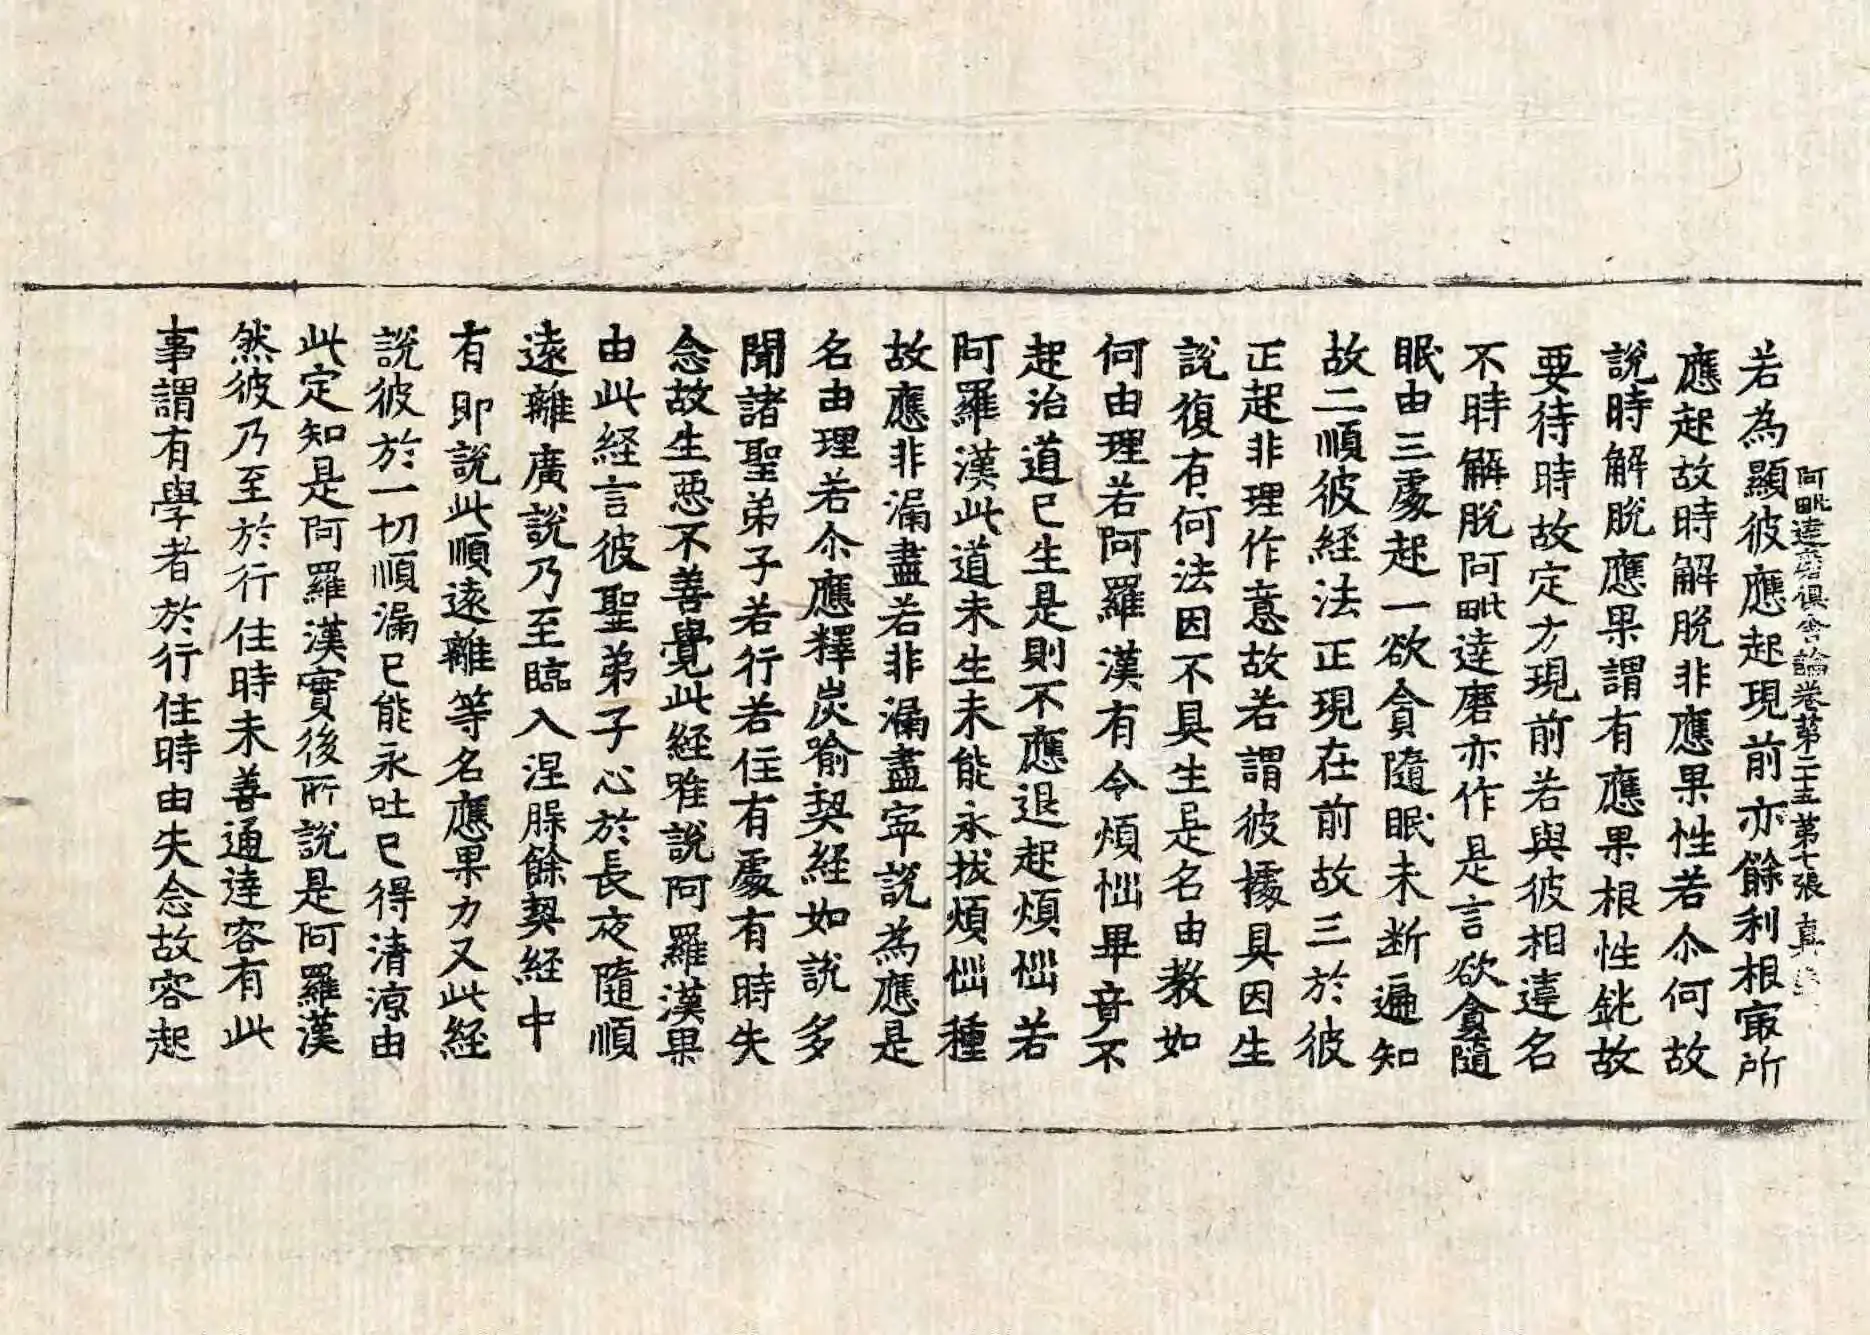 阿毗達磨俱舍論卷第二十五 第七張 真
若為顯彼應起現前亦餘利根㝡所
應起故時解脫非應果性若尒何故
說時解脫應果謂有應果根性鈍故
要待時故定方現前若與彼相違名
不時解脫阿毗達磨亦作是言欲貪隨
眠由三處起一欲貪隨眠未断遍知
故二順彼経法正現在前故三於彼
正起非理作意故若謂彼據具因生
說復有何法因不具生是名由教如
何由理若阿羅漢有令煩惱畢竟不
起治道已生是則不應退起煩惱若
阿羅漢此道未生未能永拔煩惱種
故應非漏盡若非漏盡寧說為應是
名由理若尒應釋炭喻契経如說多
聞諸聖弟子若行若住有處有時失
念故生惡不善覺此経唯說阿羅漢果
由此経言彼聖弟子心於長夜隨順
遠離廣說乃至臨入涅槃餘契経中
有即說此順遠離等名應果力又此経
說彼於一切順漏已能永吐已得清涼由
此定知是阿羅漢實後所說是阿羅漢
然彼乃至於行住時未善通達容有此
事謂有學者於行住時由失念故容起